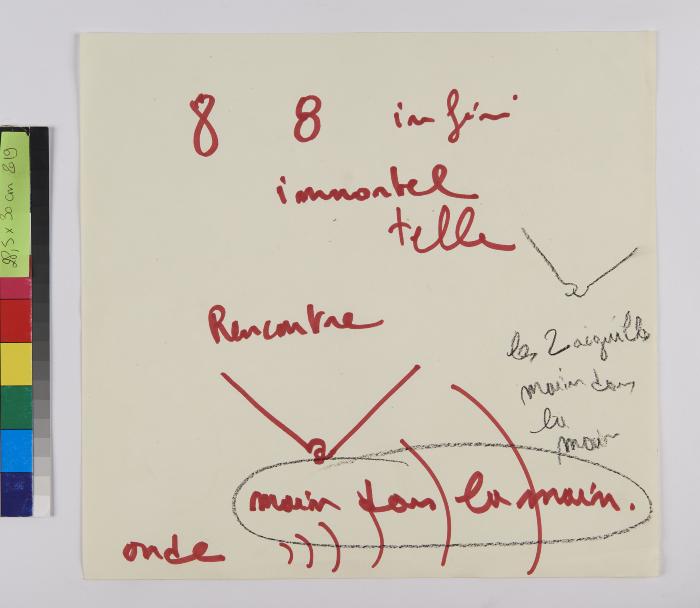 8 8 infini
immortel
telle
Rencontre
les 2 aiguilles
main dans
la
main
main dans la main.
onde
28,5 x 30 cm 2019